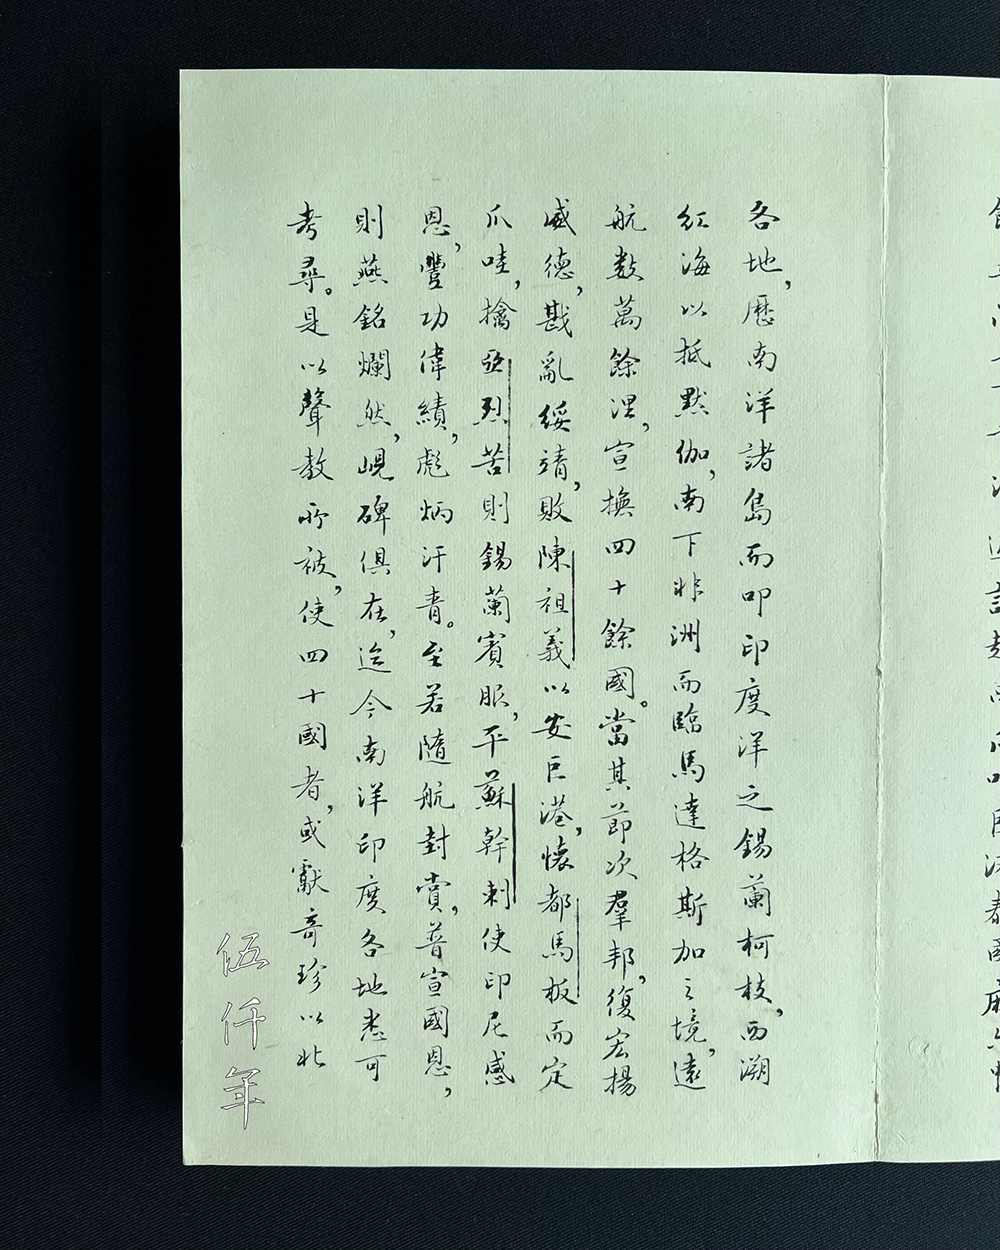 各地，歷南洋諸島而叩印度洋之錫蘭柯枝，西溯
紅海以抵默伽，南下非洲而臨馬達格斯加之境，遠
航数萬餘浬，宣撫四十餘國。當其節次羣邦，復宏揚
威德，戡亂綏靖，敗陳祖義以安巨港，懷都馬板而定
爪哇，擒亞烈苦則錫蘭賓服，平蘇幹刺使印尼感
恩，豐功偉績，彪炳汗青。至若隨航封賞，普宣國恩，
則燕銘爛然，峴碑俱在，迄今南洋印度各地悉可
考尋。是以聲教所被，使四十國者，或獻奇珍以北
伍仟年